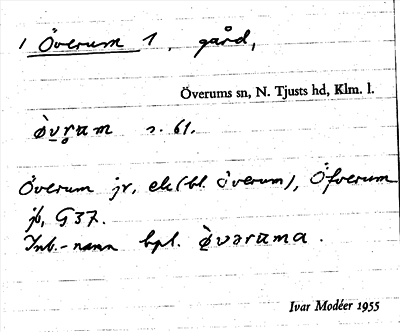 1 Överum 1, gård,
Överums sn, N. Tjusts hd, Klm. l.
s. 61.
Överum jr, ek (bl. överum), Öfverum
jb, G37.
Inb.-namn bpl.
Ivar Modéer 1955